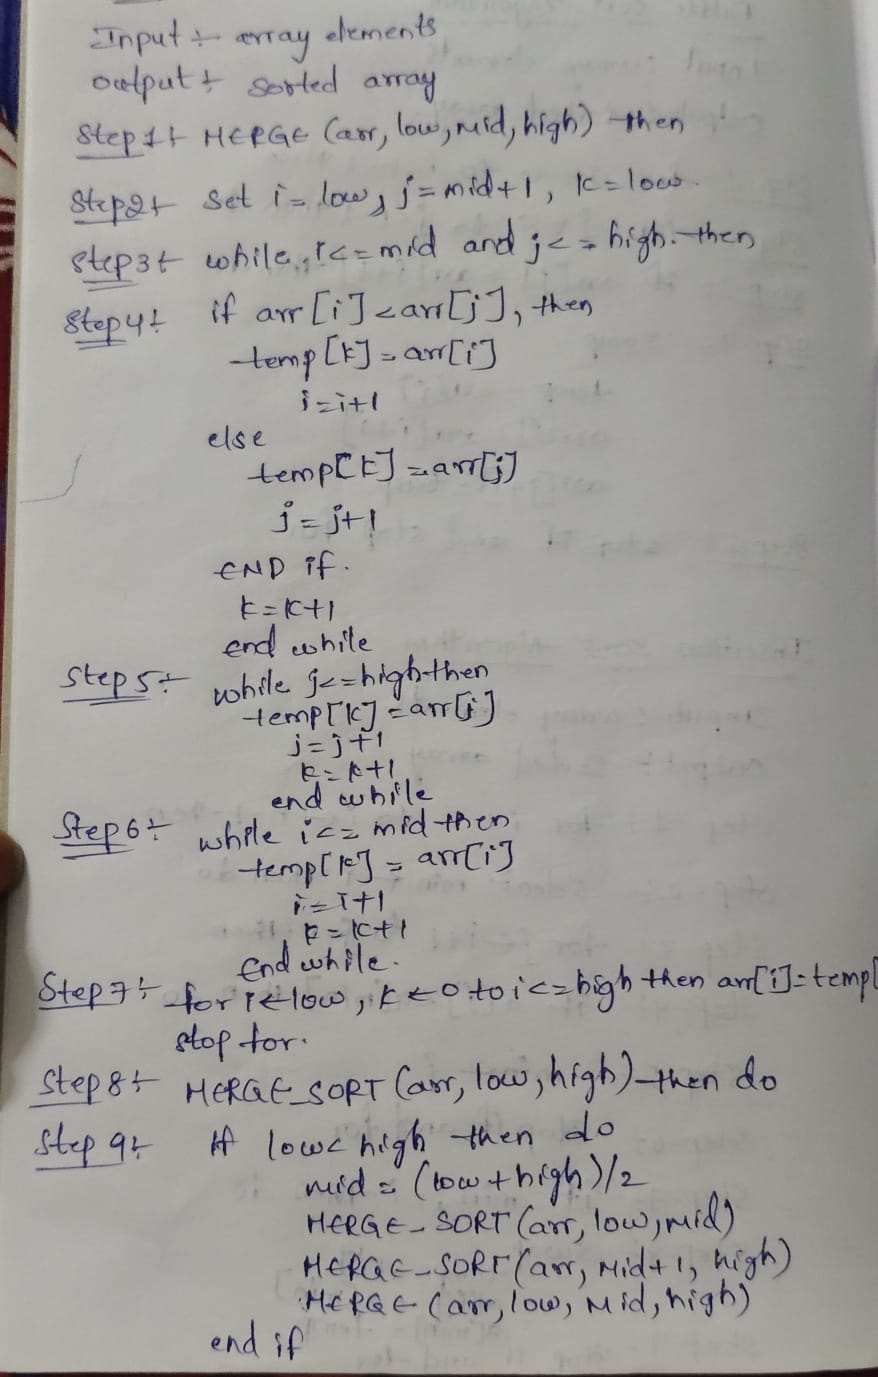 Input :- array elements
output :- sorted array
Step 1 :- MERGE (arr, low, mid, high) then
Step 2 :- Set i = low, j = mid+1, k = low.
Step 3 :- while i<=mid and j<=high then
Step 4 :- if arr[i]<arr[j], then
temp[k] = arr[i]
i=i+1
else
temp[k] = arr[j]
j = j+1
END if.
k = k+1
end while
Step 5 :- while j<=high then
temp[k] = arr[j]
j=j+1
k=k+1
end while
Step 6 :- while i<= mid then
temp[k] = arr[i]
i=i+1
k=k+1
End while.
Step 7 :- for i←low, k←0 to i<=high then arr[i]=temp[
stop for.
Step 8 :- MERGE_SORT (arr, low, high) then do
Step 9 :- If low< high then do
mid = (low+high)/2
MERGE_SORT (arr, low, mid)
MERGE_SORT (arr, mid+1, high)
MERGE (arr, low, mid, high)
end if